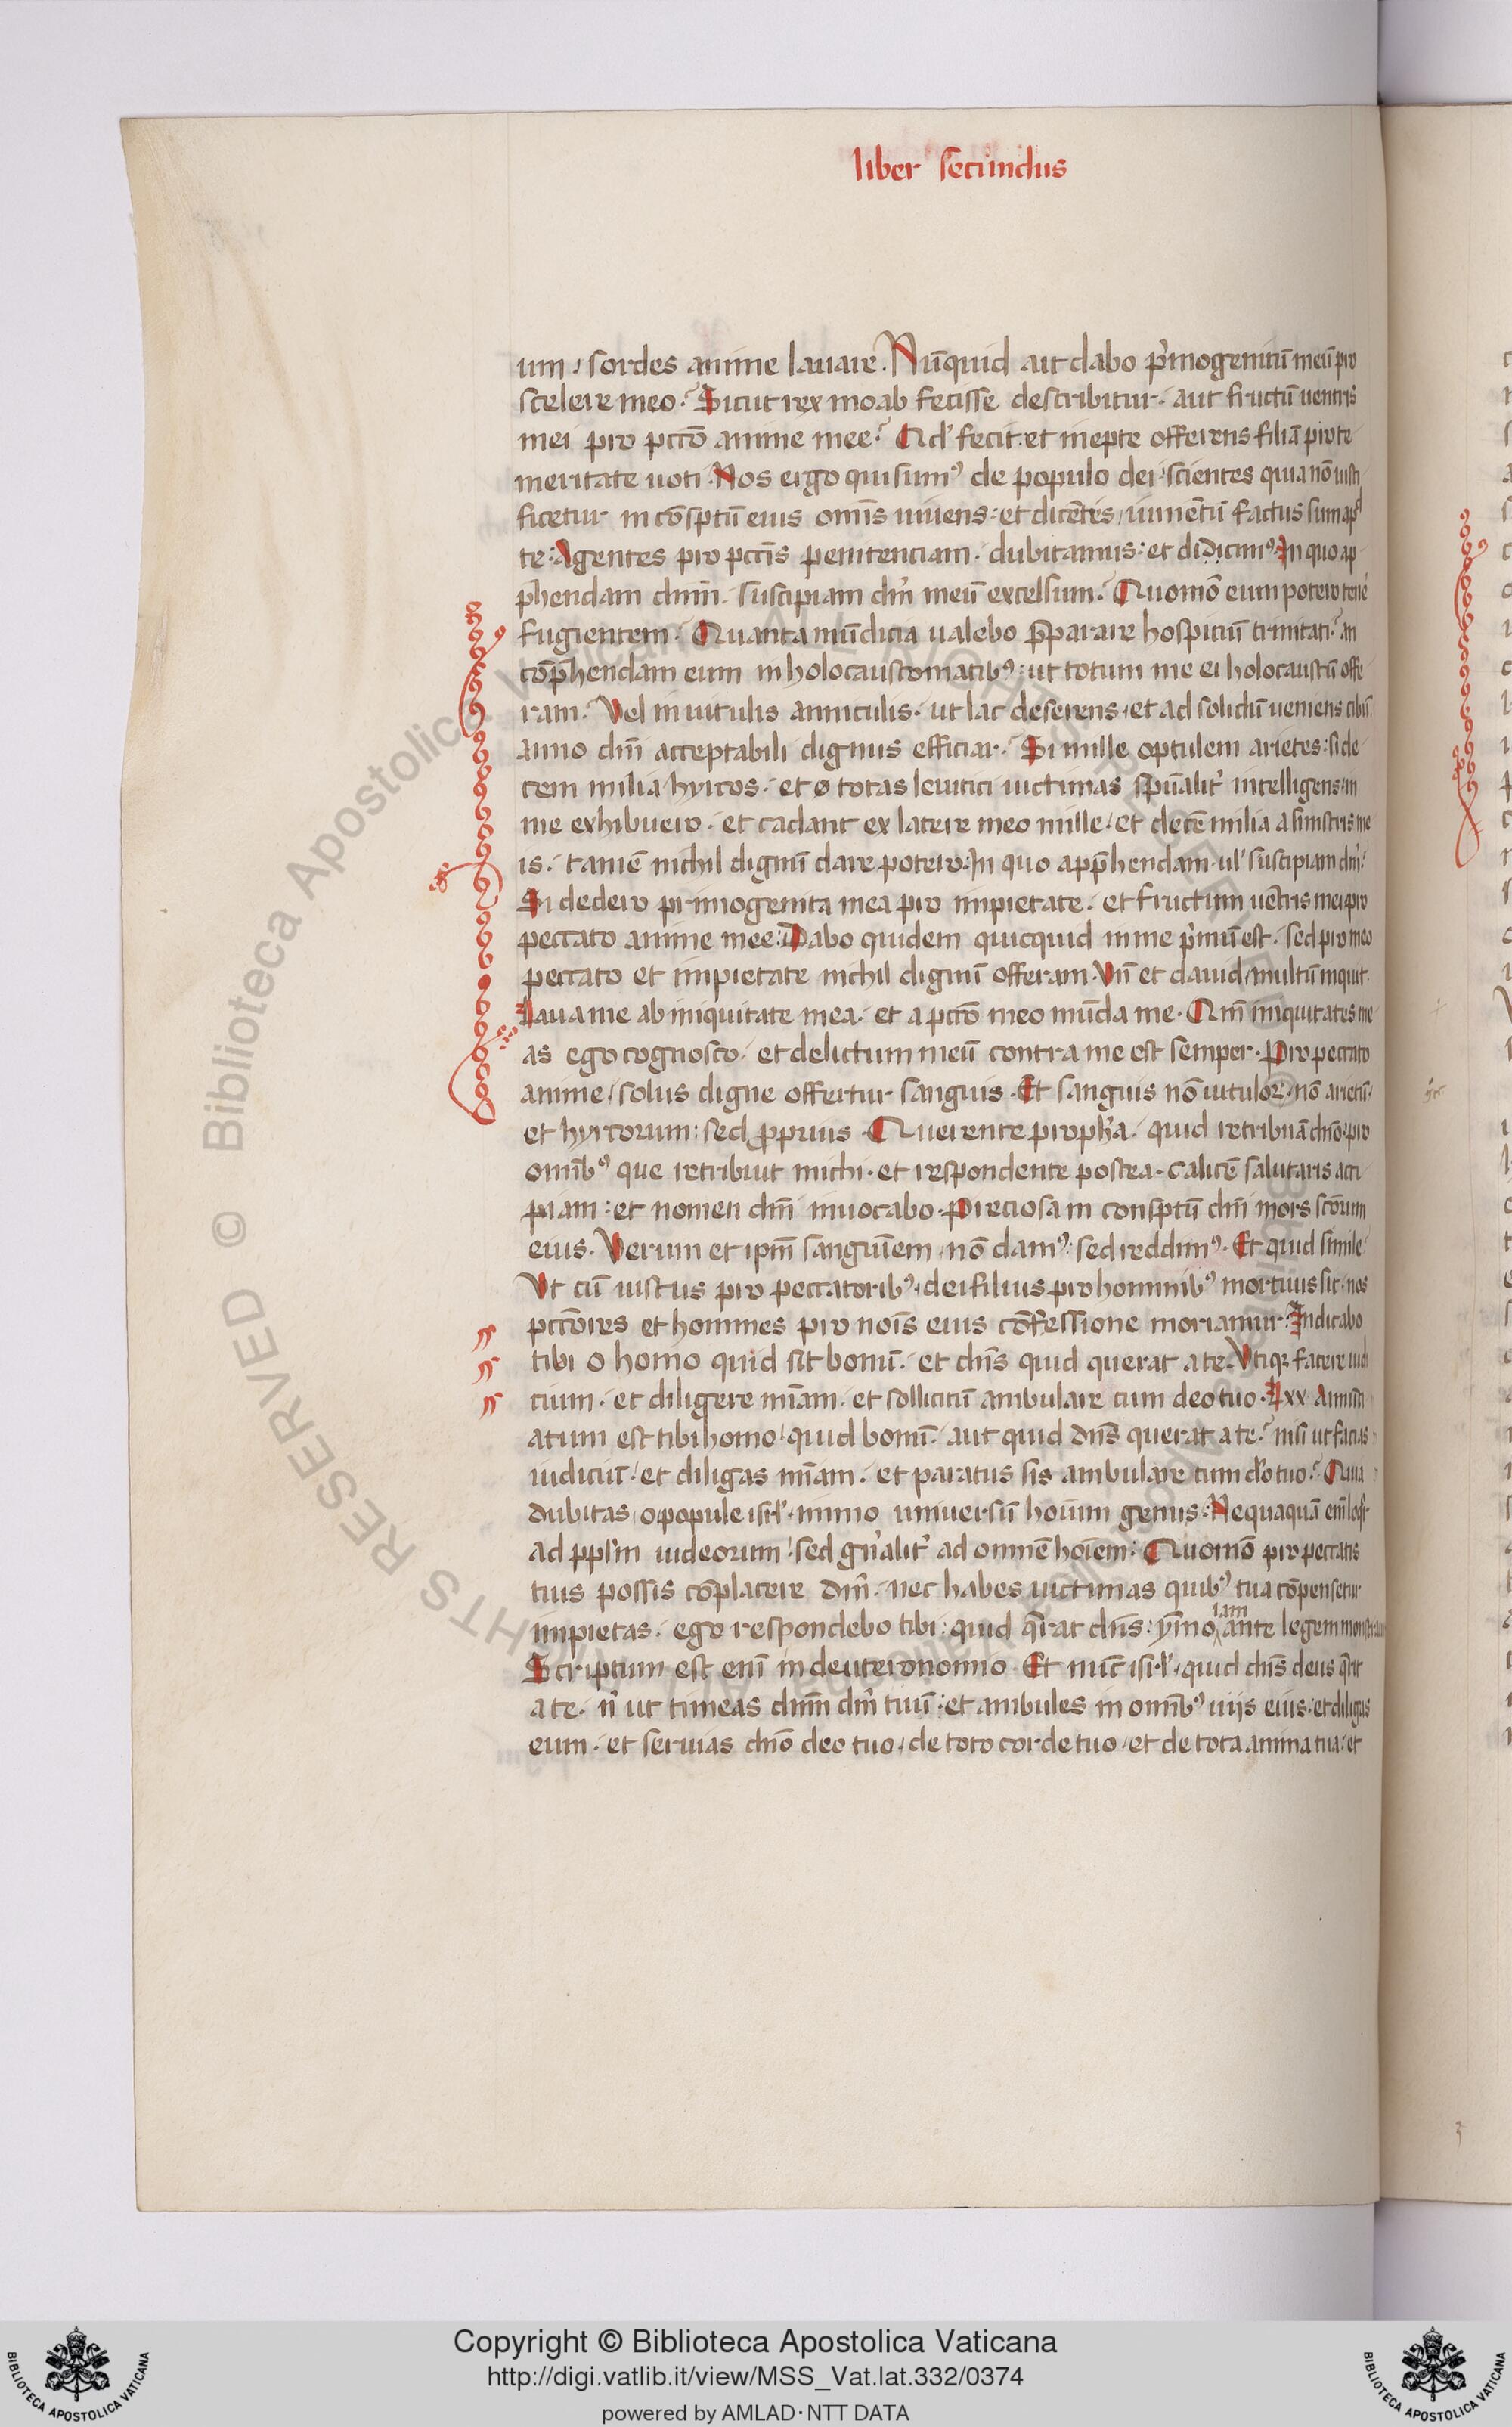 liber secundus
um / sordes anime lauare. Nūquid ait dabo p'mogenitū meū pro
scelere meo? Sicut rex moab fecisse describitur. aut fructū uentris
mei pro pctō anime mee? Qd' fecit. et inepte offerens filiā pro te
meritate uoti. Nos ergo qui sum⁹ de populo dei / scientes quia nō iusti
ficetur in cōsptū eius omīs uiuens: et dicētes / iumētū factus sum apd
te: Agentes pro pctīs penitenciam. dubitamus: et didicim⁹: In quo ap
p̄hendam dnm̄. suscipiam dm̄ meū excelsum? Quomō eum potero tene'
fugientem. Quanta mūdicia ualebo p̄parare hospiciū trinitati? an
cōp̄hendam eum in holocaustomatib⁹: ut totum me ei holocaustū offe
ram. Vel in uitulis anniculis. ut lac deserens. et ad solidū ueniens cibū
anno dnī acceptabili dignus efficiar. Si mille optulem arietes: si de
cem milia hyrcos. et totas leuitici uictimas spūalit' intelligens in
me exhibuero. et cadant ex latere meo mille. et decē milia a sinistris me
is. tamē nichil dignū dare potero: In quo app̄hendam. ul' suscipiam dm̄?
Si dedero primogenita mea pro impietate. et fructum uētris mei pro
peccato anime mee: Dabo quidem quicquid in me p'mū est. sed pro meo
peccato et impietate nichil dignū offeram. Vn̄ et dauid / multū inquit.
Laua me ab iniquitate mea. et a pctō meo mūda me. Qm̄ iniquitates me
as ego cognosco. et delictum meū contra me est semper. Pro peccato
anime / solus digne offertur sanguis. Et sanguis nō uitulor̨. nō arietū.
et hyrcorum: sed ꝓprius. Querente proph'a. quid retribuā dnō. pro
omīb⁹ que retribuit michi. et respondente postea. calicē salutaris acci
piam: et nomen dnī inuocabo. Preciosa in consptū dnī mors scōrum
eius. Verum et ipm̄ sanguīem / nō dam⁹: sed reddim⁹. Et quid simile?
Vt cū iustus pro peccatorib⁹. dei filius pro hominib⁹ mortuus sit. nos
pctōres et homines pro noīs eius cōfessione moriamur: Indicabo
tibi o homo quid sit bonū. et dn̄s quid querat a te. Vtiqȝ facere iudi
cium. et diligere mīam. et sollicitū ambulare cum deo tuo. Lxx Annūti
atum est tibi homo / quid bonū. aut quid dn̄s querat a te? nisi ut facias
iudiciū. et diligas mīam. et paratus sis ambulare cum d'o tuo? Quia
dubitas / o popule isr̄l'. immo uniuersū hoīum genus: Nequaquā em̄ loqr̄
ad ppl'm iudeorum / sed gn'alit' ad omnē hoīem: Quomō pro peccatis
tuis possis cōplacere dm̄. nec habes uictimas quib⁹ tua cōpensetur
iam
impietas. ego respondebo tibi: quid q̄rat dn̄s: ȳmo ante legem monstraui
Scriptum est enī in deuteronomio. Et nūc isr̄l'. quid dn̄s deus q̄rit
a te. n' ut timeas dnm̄ dm̄ tuū: et ambules in omīb⁹ uijs eius. et diligas
eum. et seruias dnō deo tuo. de toto corde tuo. et de tota anima tua. et
Copyright © Biblioteca Apostolica Vaticana
http://digi.vatlib.it/view/MSS_Vat.lat.332/0374
powered by AMLAD·NTT DATA
BIBLIOTECA APOSTOLICA VATICANA
BIBLIOTECA APOSTOLICA VATICANA